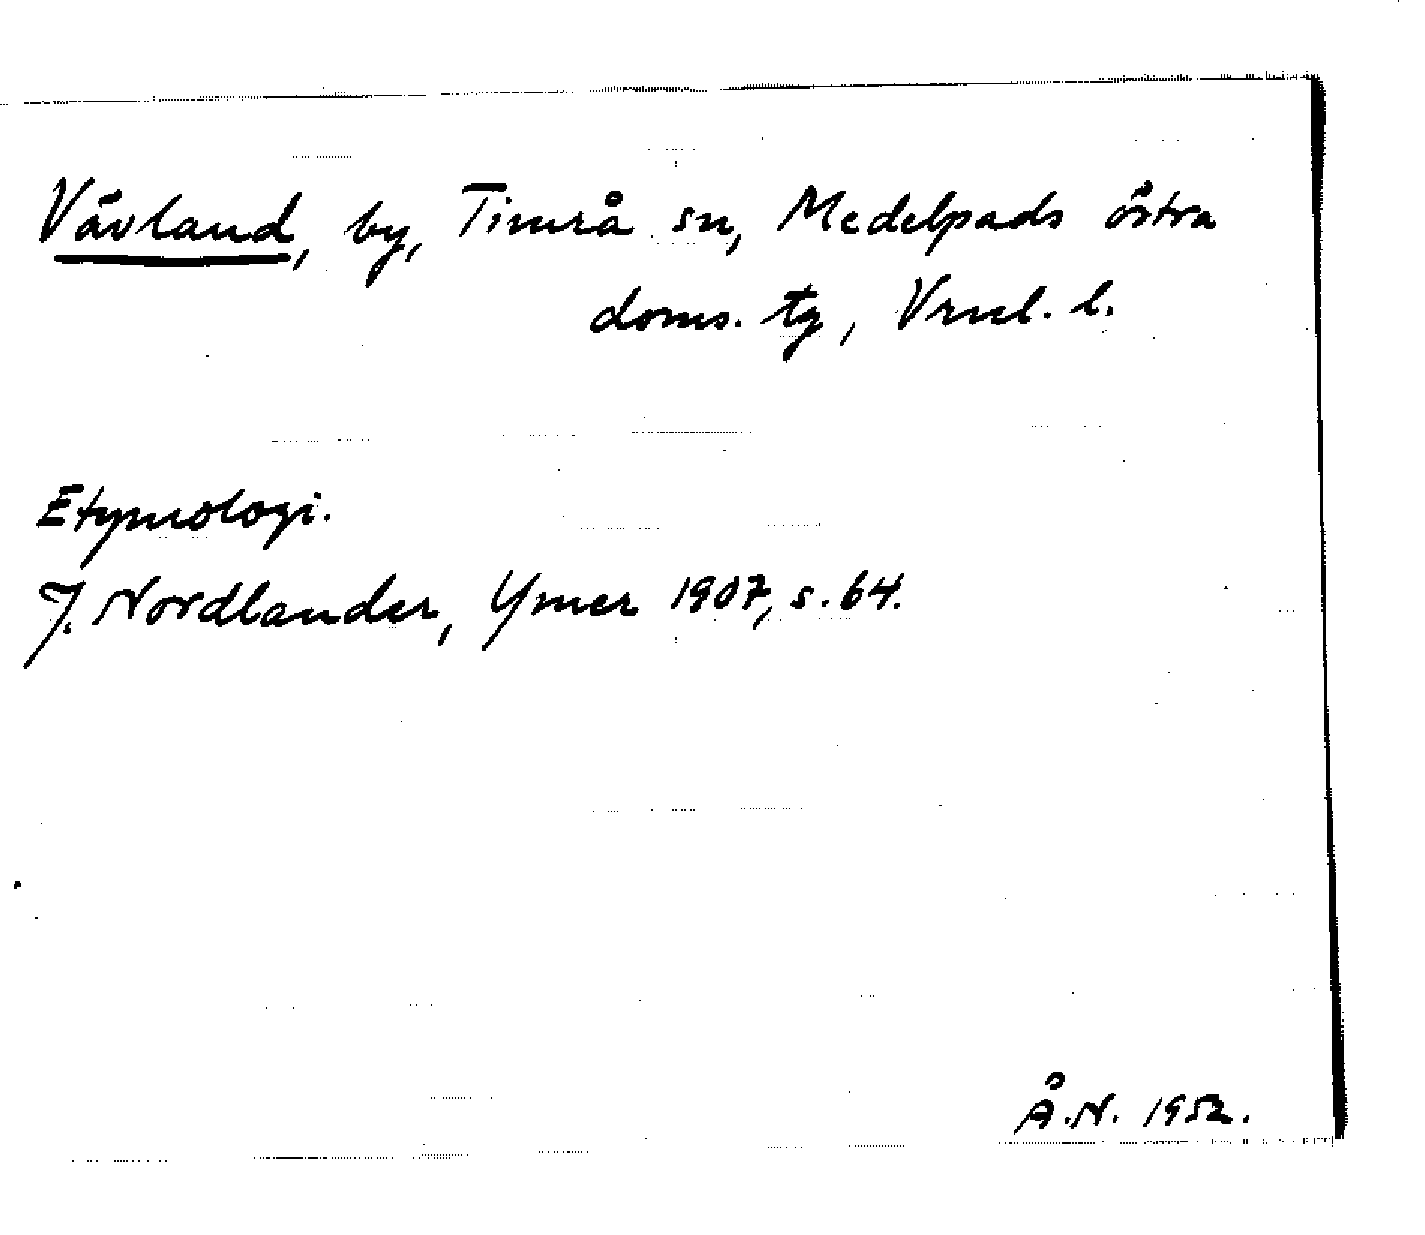 Vävland, by, Timrå sn, Medelpads östra
doms. tg, Vrnl. l.
Etymologi.
J. Nordlander, Ymer 1907, s. 64.
Å.N. 1952.